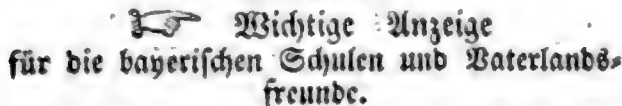 ☞ Wichtige Anzeige
für die bayerischen Schulen und Vaterlands-
freunde.